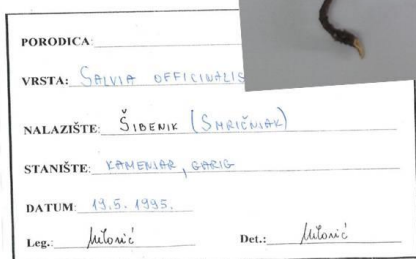 PORODICA:
VRSTA: SALVIA OFFICINALIS
NALAZIŠTE: ŠIBENIK (SMRIČNJAK)
STANIŠTE: KAMENJAR, GARIG
DATUM: 19.5.1995.
Leg.: Milović Det.: Milović